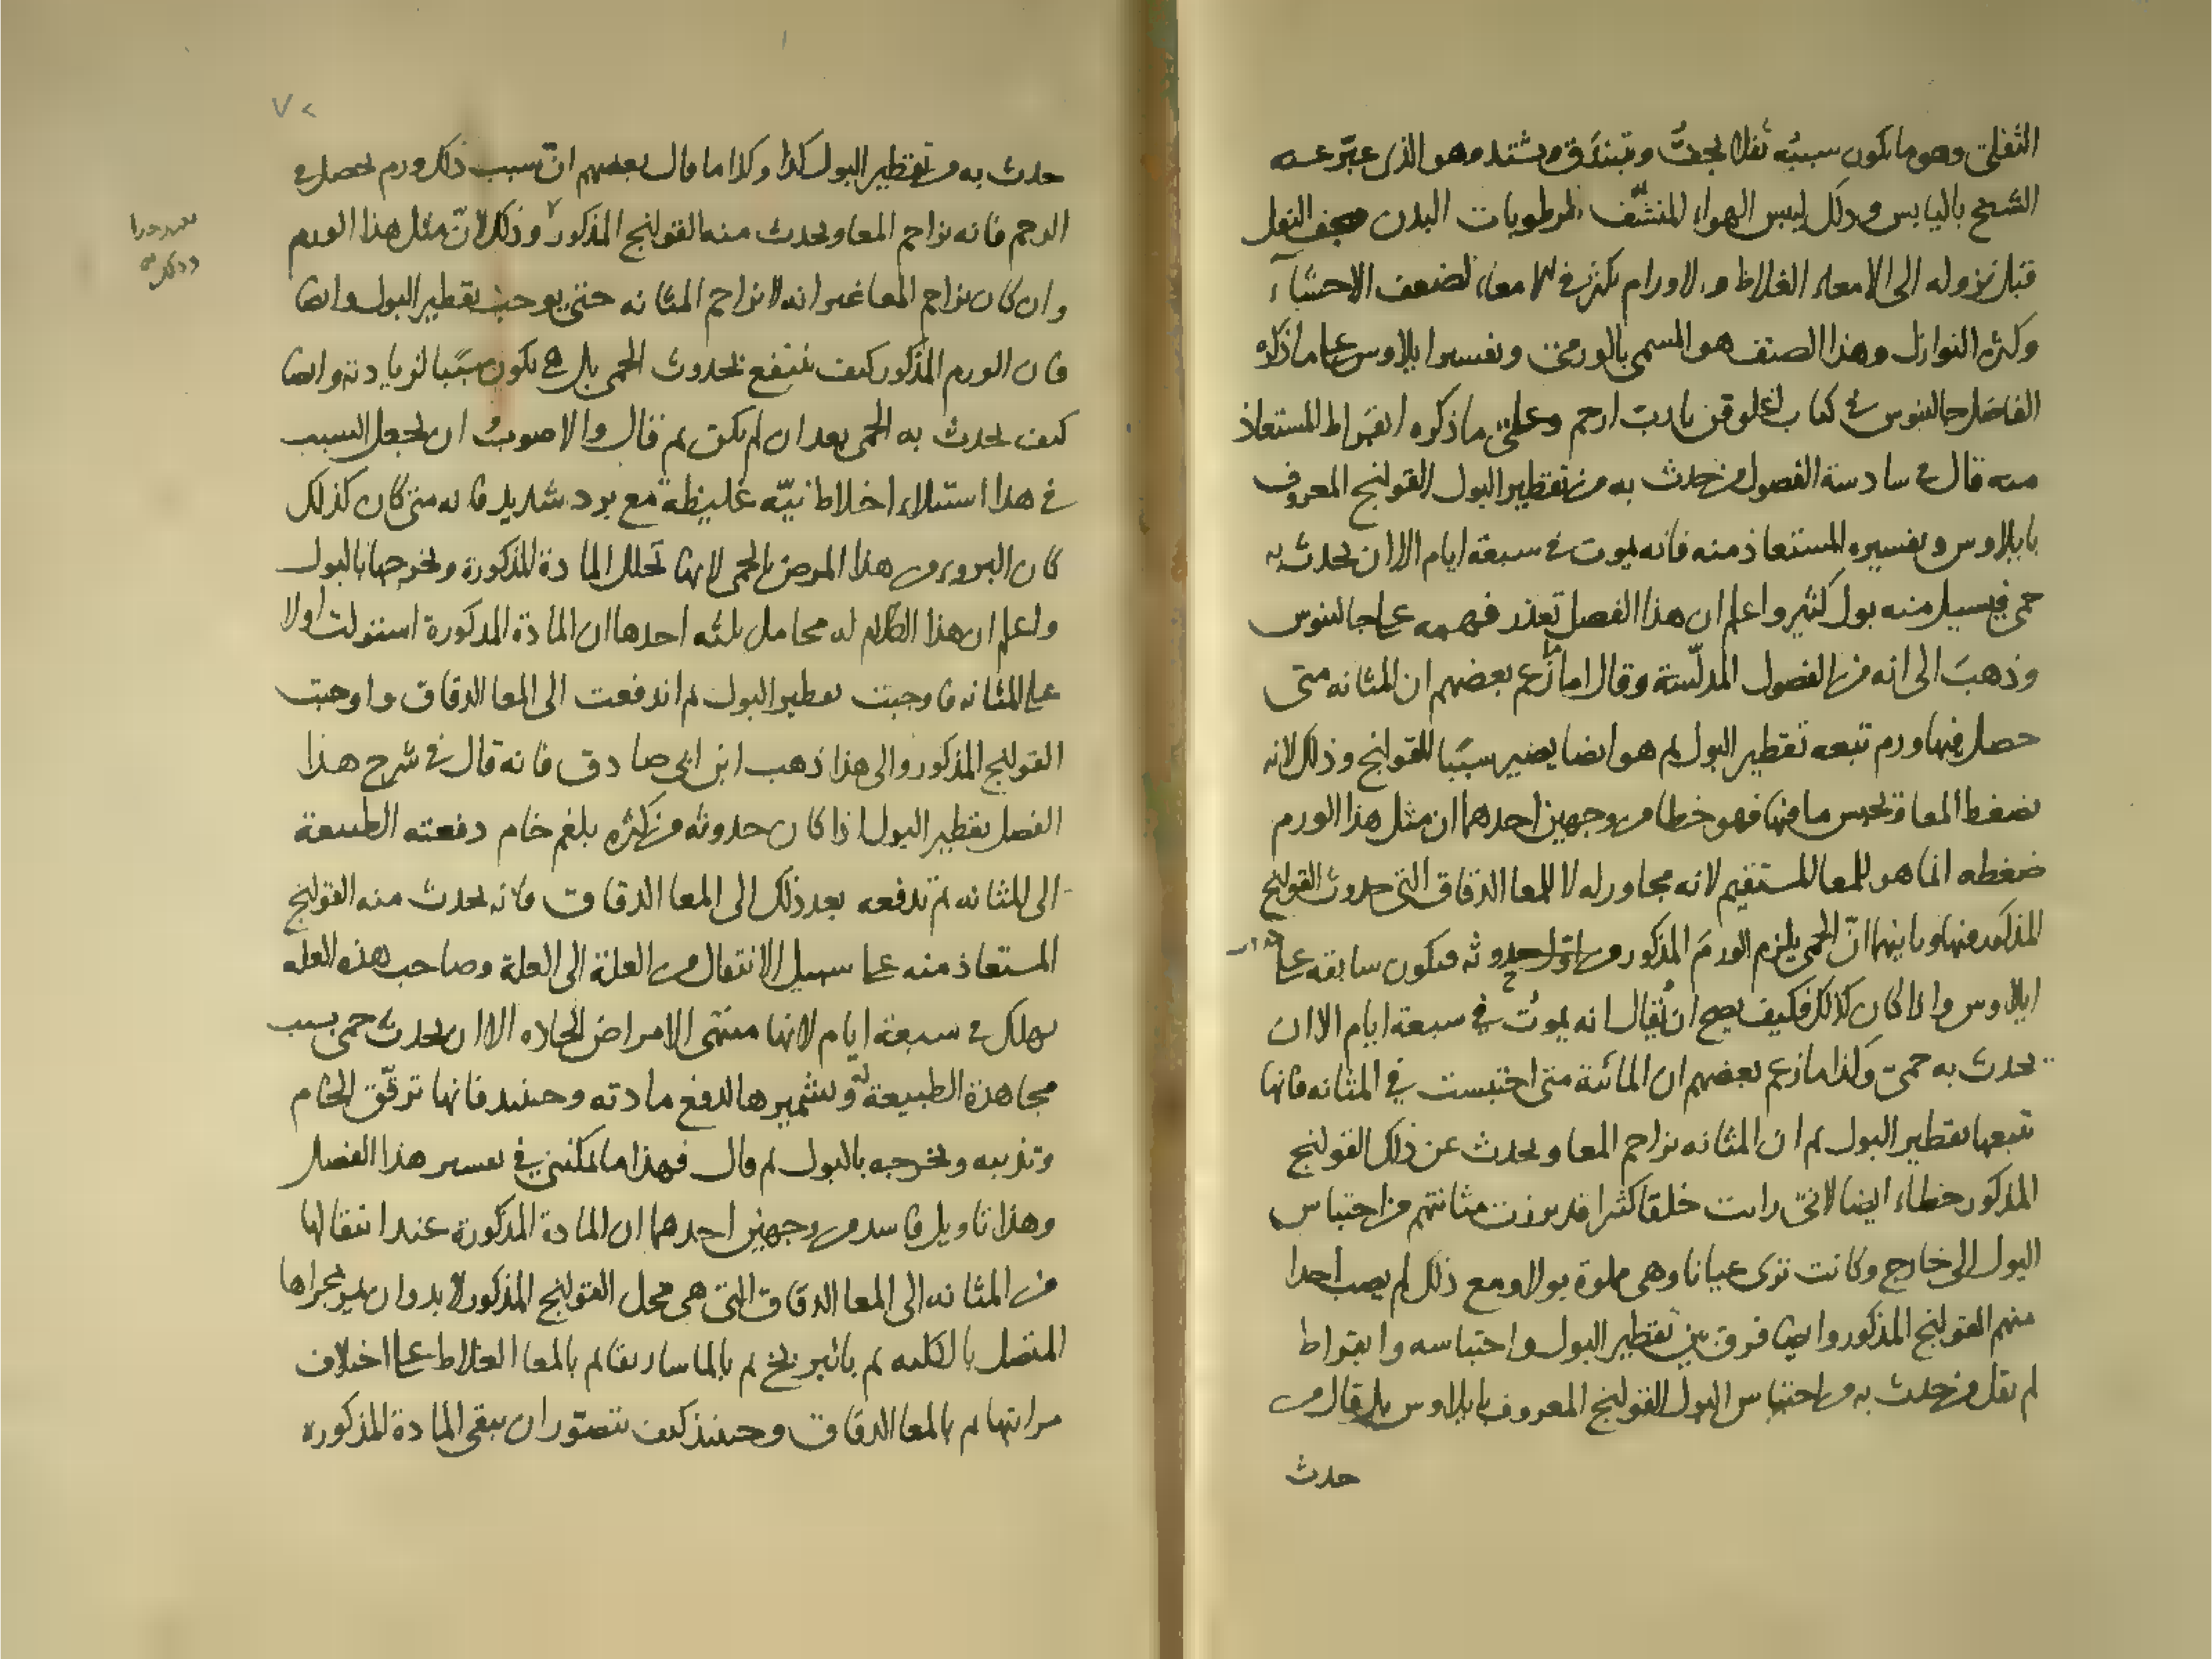 الثفلى وهو ما يكون سببه ثفلا يجف ويتبندق ويشتد وهو الذى عبر عنه
الشيخ باليابس وذلك ليبس الهواء المنشف لرطوبات البدن فيجف الثفل
قبل نزوله الى الامعاء الغلاظ والاورام تكثر فى الامعاء لضعف الاحشاء
وكثرة النوازل وهذا الصنف هو المسمى بالورمى وتفسير ايلاوس على ما ذكره
الفاضل جالينوس فى كتاب اغلوقن يا رب ارحم وعلى ما ذكره ابقراط المستعاذ
منه قال فى سادسة الفصول من حدث به من تقطير البول القولنج المعروف
بايلاوس وتفسيره المستعاذ منه فانه يموت فى سبعة ايام الا ان يحدث به
حمى فيسيل منه بول كثير واعلم ان هذا الفصل تعذر فهمه على جالينوس
وذهب الى انه من الفصول المدلسة وقال اما ما زعم بعضهم ان المثانه متى
حصل فيها ورم تبعه تقطير البول ثم هو ايضا يصير سببا للقولنج وذلك لانه
يضغط المعا ويحبس ما فيها فهو خطا من وجهين احدهما ان مثل هذا الورم
ضغطه انما هو للمعا المستقيم لانه مجاور له لا للمعا الدقاق التى حدوث القولنج
المذكور فيها وثانيهما ان الحمى يلزم الورم المذكور من اول حدوثه فتكون سابقه على
ايلاوس واذا كان كذلك فكيف يصح ان يقال انه يموت فى سبعة ايام الا ان
يحدث به حمى وكذا ما زعم بعضهم ان المائية متى احتبست فى المثانه فانها
تتبعها تقطير البول ثم ان المثانه تزاحم المعا ويحدث عن ذلك القولنج
المذكور خطاء ايضا لانى رايت خلقا كثيرا قد برزت مثانتهم من احتباس
البول الى خارج وكانت ترى عيانا وهى مملوة بولا ومع ذلك لم يصب احدا
منهم القولنج المذكور وايضا فرق بين تقطير البول واحتباسه وابقراط
لم يقل من حدث به من احتباس البول القولنج المعروف بايلاوس بل قال من
حدث
٧٢
حدث به من تقطير البول كذا وكذا اما قال بعضهم ان سبب ذلك ورم يحصل فى
الرحم فانه يزاحم المعا ويحدث منه القولنج المذكور وذلك لان مثل هذا الورم
وان كان يزاحم المعا غير انه لا يزاحم المثانه حتى يوجب تقطير البول وايضا
فان الورم المذكور كيف ينتفع بحدوث الحمى بل هى تكون سببا لزيادته وايضا
كيف يحدث به الحمى بعد ان لم يكن ثم قال والاصوب ان يجعل السبب
فى هذا استيلاء اخلاط نيّه غليظه مع برد شديد فانه متى كان كذلك
كان البرو من هذا المرض بالحمى لانها تحلل المادة المذكورة وتخرجها بالبول
واعلم ان هذا الكلام له محامل ثلثه احدها ان المادة المذكورة استولت اولا
على المثانه فاوجبت تقطير البول ثم اندفعت الى المعا الدقاق واوجبت
القولنج المذكور والى هذا ذهب ابن ابى صادق فانه قال فى شرح هذا
الفصل تقطير البول اذا كان حدوثه من كثرة بلغم خام دفعته الطبيعة
الى المثانه ثم تدفعه بعد ذلك الى المعا الدقاق فانه يحدث منه القولنج
المستعاذ منه على سبيل الانتقال من العلة الى العلة وصاحب هذه العله
يهلك فى سبعة ايام لانها منتهى الامراض الحاده الا ان يحدث حمى بسبب
مجاهدة الطبيعة له وتشميرها لدفع مادته وحينئذ فانها ترقّق الخام
وتذيبه وتخرجه بالبول ثم قال فهذا ما يمكننى فى تفسير هذا الفصل
وهذا تاويل فاسد من وجهين احدهما ان المادة المذكورة عند انتقالها
من المثانه الى المعا الدقاق التى هى محل القولنج المذكور لا بد وان تمر بمجراها
المتصل بالكليه ثم بالبربخ ثم بالماساريقا ثم بالمعا الغلاظ على اختلاف
مراتبها ثم بالمعا الدقاق وحينئذ كيف يتصوّر ان يبقى المادة المذكوره